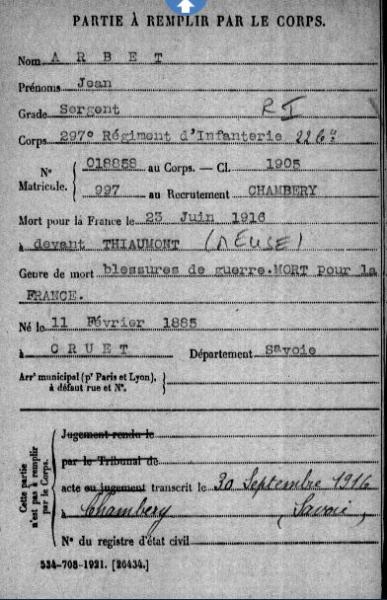 PARTIE À REMPLIR PAR LE CORPS.
Nom ARBET
Prénoms Jean
Grade Sergent R I
Corps 297° Régiment d'Infanterie 226e
N° Matricule. { 018858 au Corps. — Cl. 1905
997 au Recrutement CHAMBERY
Mort pour la France le 23 Juin 1916
à devant THIAUMONT (MEUSE)
Genre de mort blessures de guerre.MORT pour la
FRANCE.
Né le 11 Février 1885
à CRUET Département Savoie
Arrt municipal (pr Paris et Lyon),
à défaut rue et N°.
Cette partie n'est pas à remplir par le Corps.
Jugement rendu le
par le Tribunal de
acte ou jugement transcrit le 30 Septembre 1916
à Chambery (Savoie)
N° du registre d'état civil
534-708-1921. [26434.]